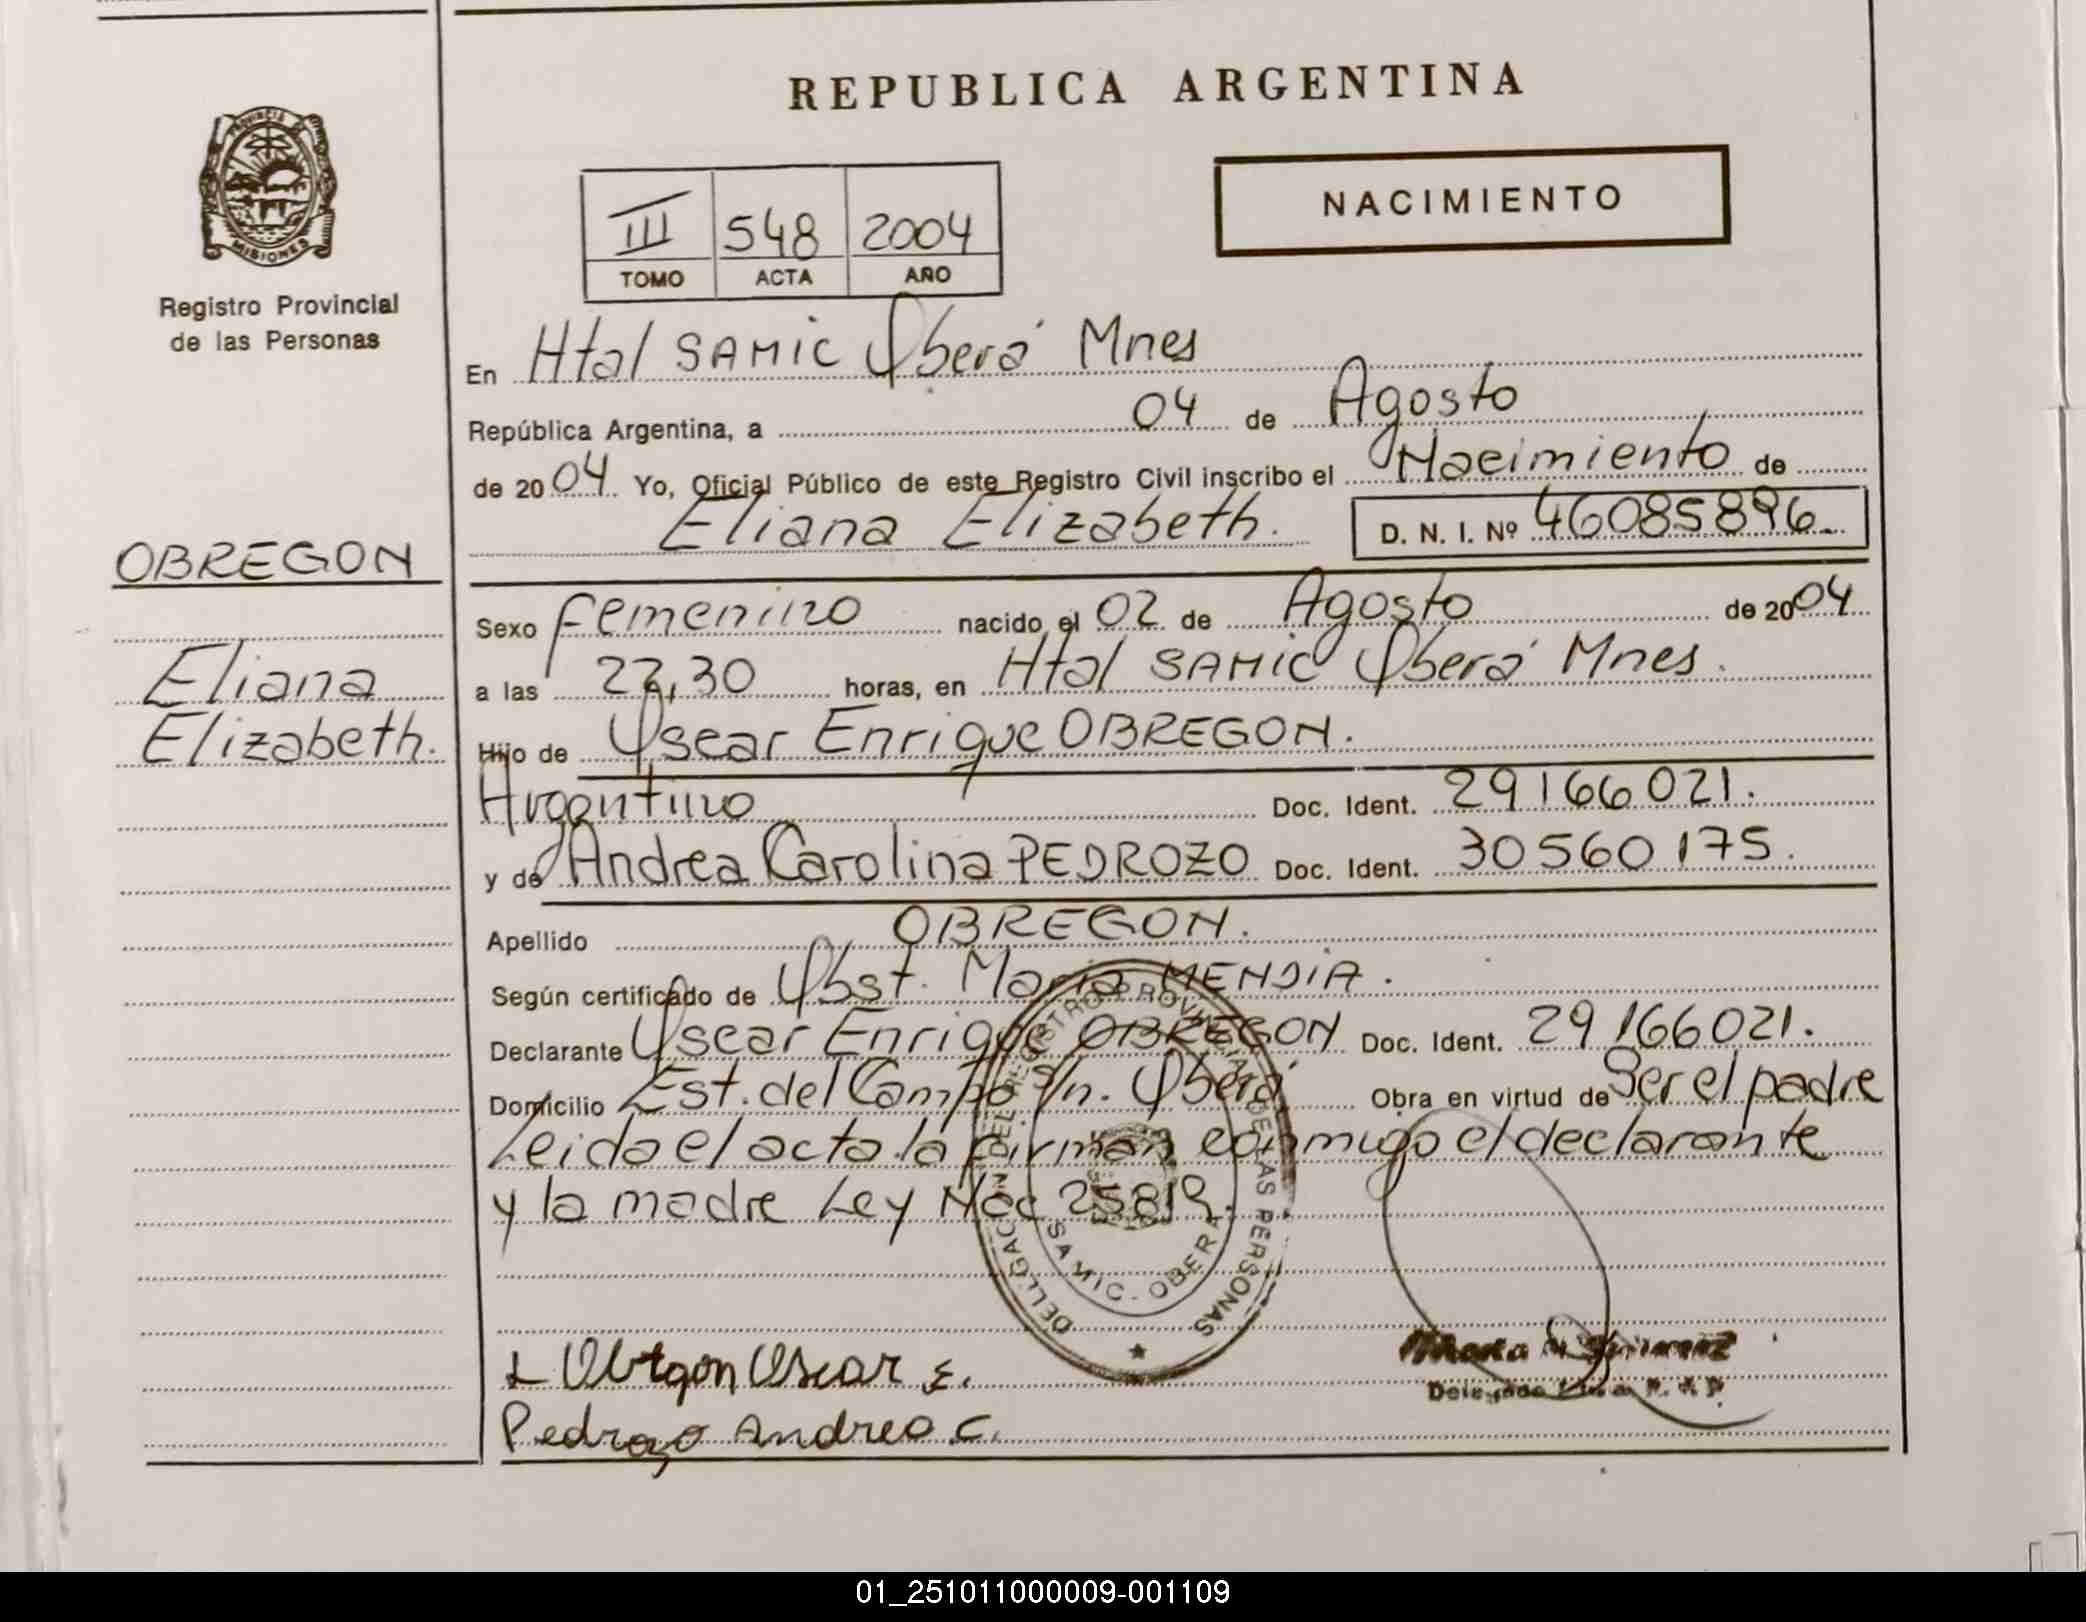 REPUBLICA ARGENTINA
PROVINCIA DE
MISIONES
Registro Provincial
de las Personas
III 548 2004
TOMO ACTA AÑO
NACIMIENTO
En Htal SAMIC Oberá Mnes
República Argentina, a 04 de Agosto
de 2004 Yo, Oficial Público de este Registro Civil inscribo el Nacimiento de
Eliana Elizabeth. D. N. I. Nº 46085896
OBREGON
Eliana
Elizabeth.
Sexo femenino nacido el 02 de Agosto de 2004
a las 22,30 horas, en Htal SAMIC Oberá Mnes.
Hijo de Oscar Enrique OBREGON.
Argentino Doc. Ident. 29166021.
y de Andrea Carolina PEDROZO Doc. Ident. 30560175.
Apellido OBREGON.
Según certificado de Obst. Maria MENDIA.
Declarante Oscar Enrique OBREGON Doc. Ident. 29166021.
Domicilio Est. del Campo s/n. Oberá Obra en virtud de Ser el padre
Leida el acta la firman conmigo el declarante
y la madre Ley Nac 25819.
DELEGACION DEL REGISTRO PROVINCIAL DE LAS PERSONAS
SAMIC - OBERA
Obregon Oscar E.
Pedrozo Andrea C.
01_251011000009-001109